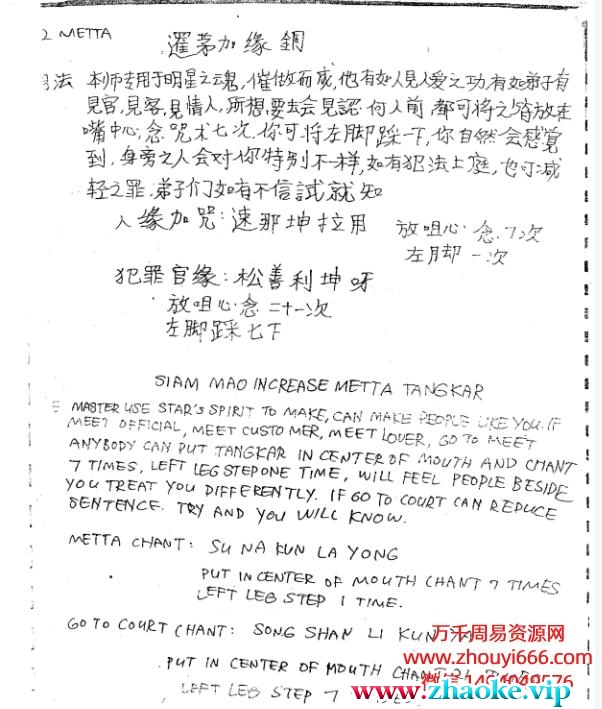 2 METTA
暹茅加缘銅
法 本师专用于明星之魂,催做而成,他有如人見人爱之功,有如弟子有
見官,見客,見情人,所想要去会見認何人前,都可将之皆放在
嘴中心,念咒术七次,你可将左脚踩一下,你自然会感覚
到,身旁之人会对你特别不一样,如有犯法上庭,也可减
轻之罪.弟子们如有不信試就知
人缘加咒:速那坤拉用 放咀心.念.7次
左脚一次
犯罪官缘:松善利坤呀
放咀心.念二十一次
左脚踩七下
SIAM MAO INCREASE METTA TANGKAR
MASTER USE STAR'S SPIRIT TO MAKE, CAN MAKE PEOPLE LIKE YOU. IF
MEET OFFICIAL, MEET CUSTOMER, MEET LOVER, GO TO MEET
ANYBODY CAN PUT TANGKAR IN CENTER OF MOUTH AND CHANT
7 TIMES, LEFT LEG STEP ONE TIME, WILL FEEL PEOPLE BESIDE
YOU TREAT YOU DIFFERENTLY. IF GO TO COURT CAN REDUCE
SENTENCE. TRY AND YOU WILL KNOW.
METTA CHANT: SU NA KUN LA YONG
PUT IN CENTER OF MOUTH CHANT 7 TIMES
LEFT LEG STEP 1 TIME.
GO TO COURT CHANT: SONG SHAN LI KUN
PUT IN CENTER OF MOUTH CHANT 21
LEFT LEG STEP 7
万千周易资源网
www.zhouyi666.com
www.zhaoke.vip